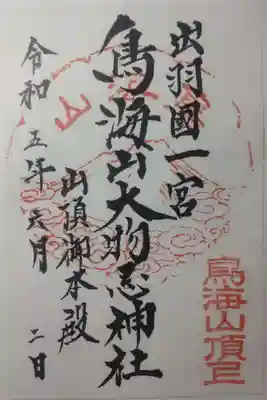 出羽國一宮
鳥海山大物忌神社
山頂御本殿
令和五年六月二日
鳥海山頂